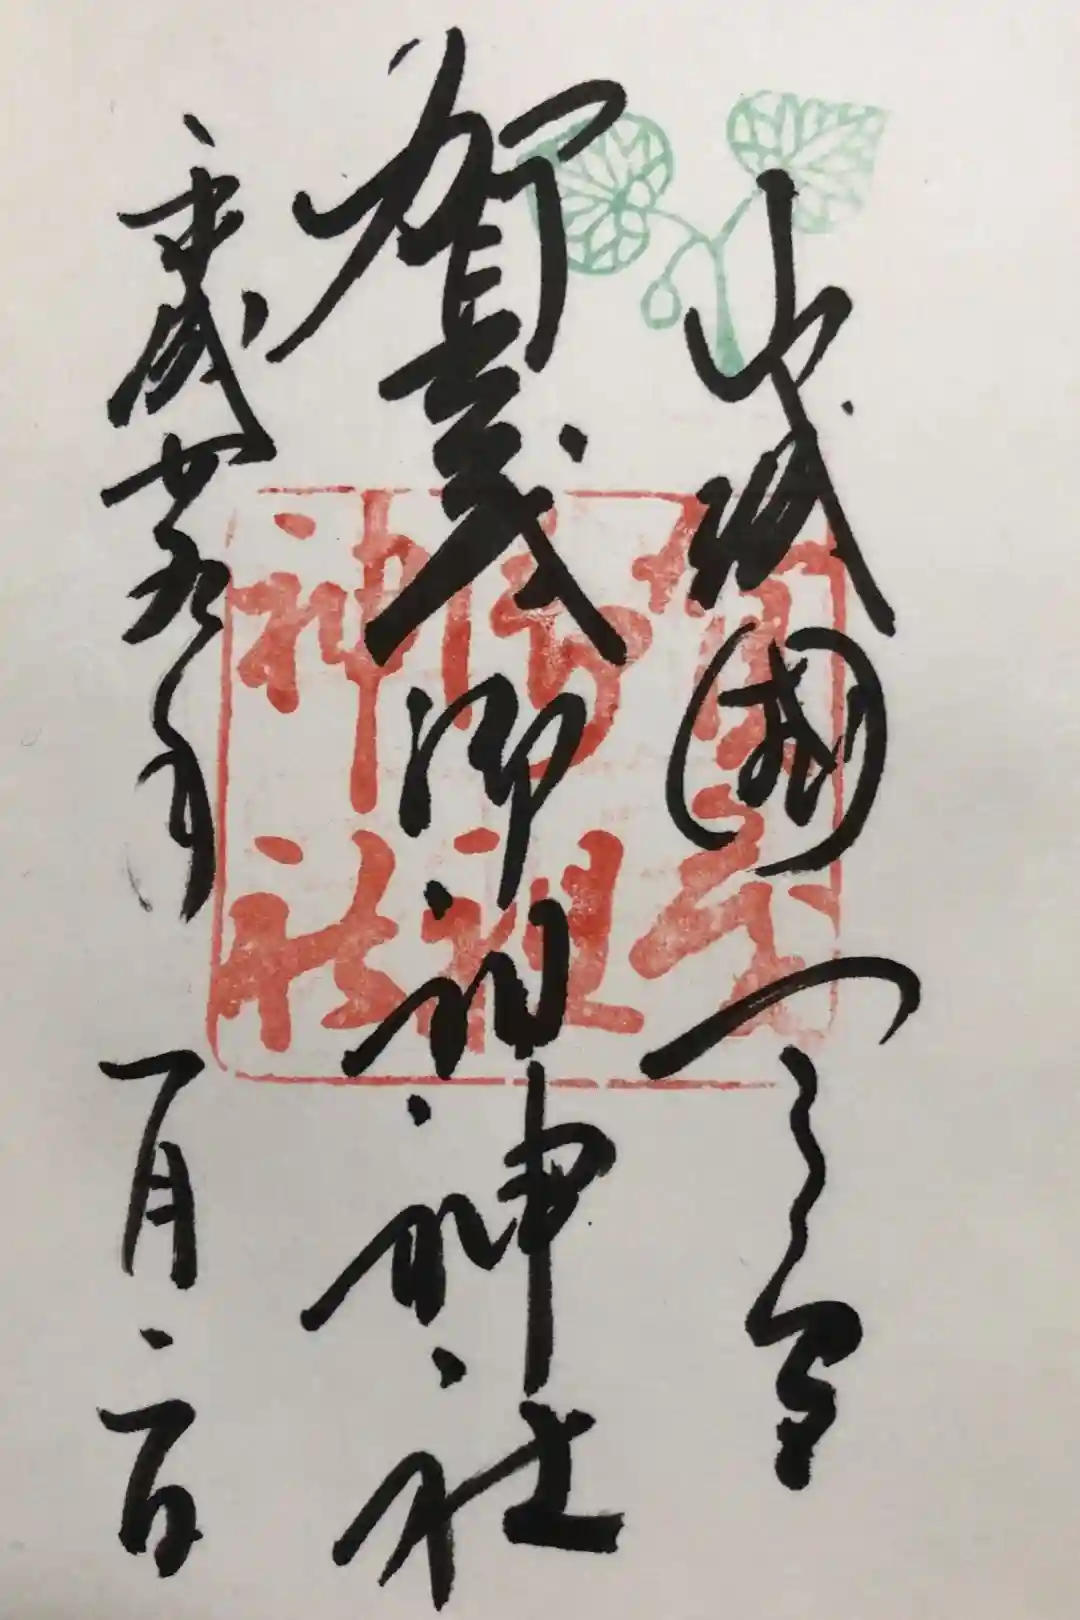 山城國一之宮
賀茂御祖神社
平成廿九年一月二日
賀茂
御祖
神社